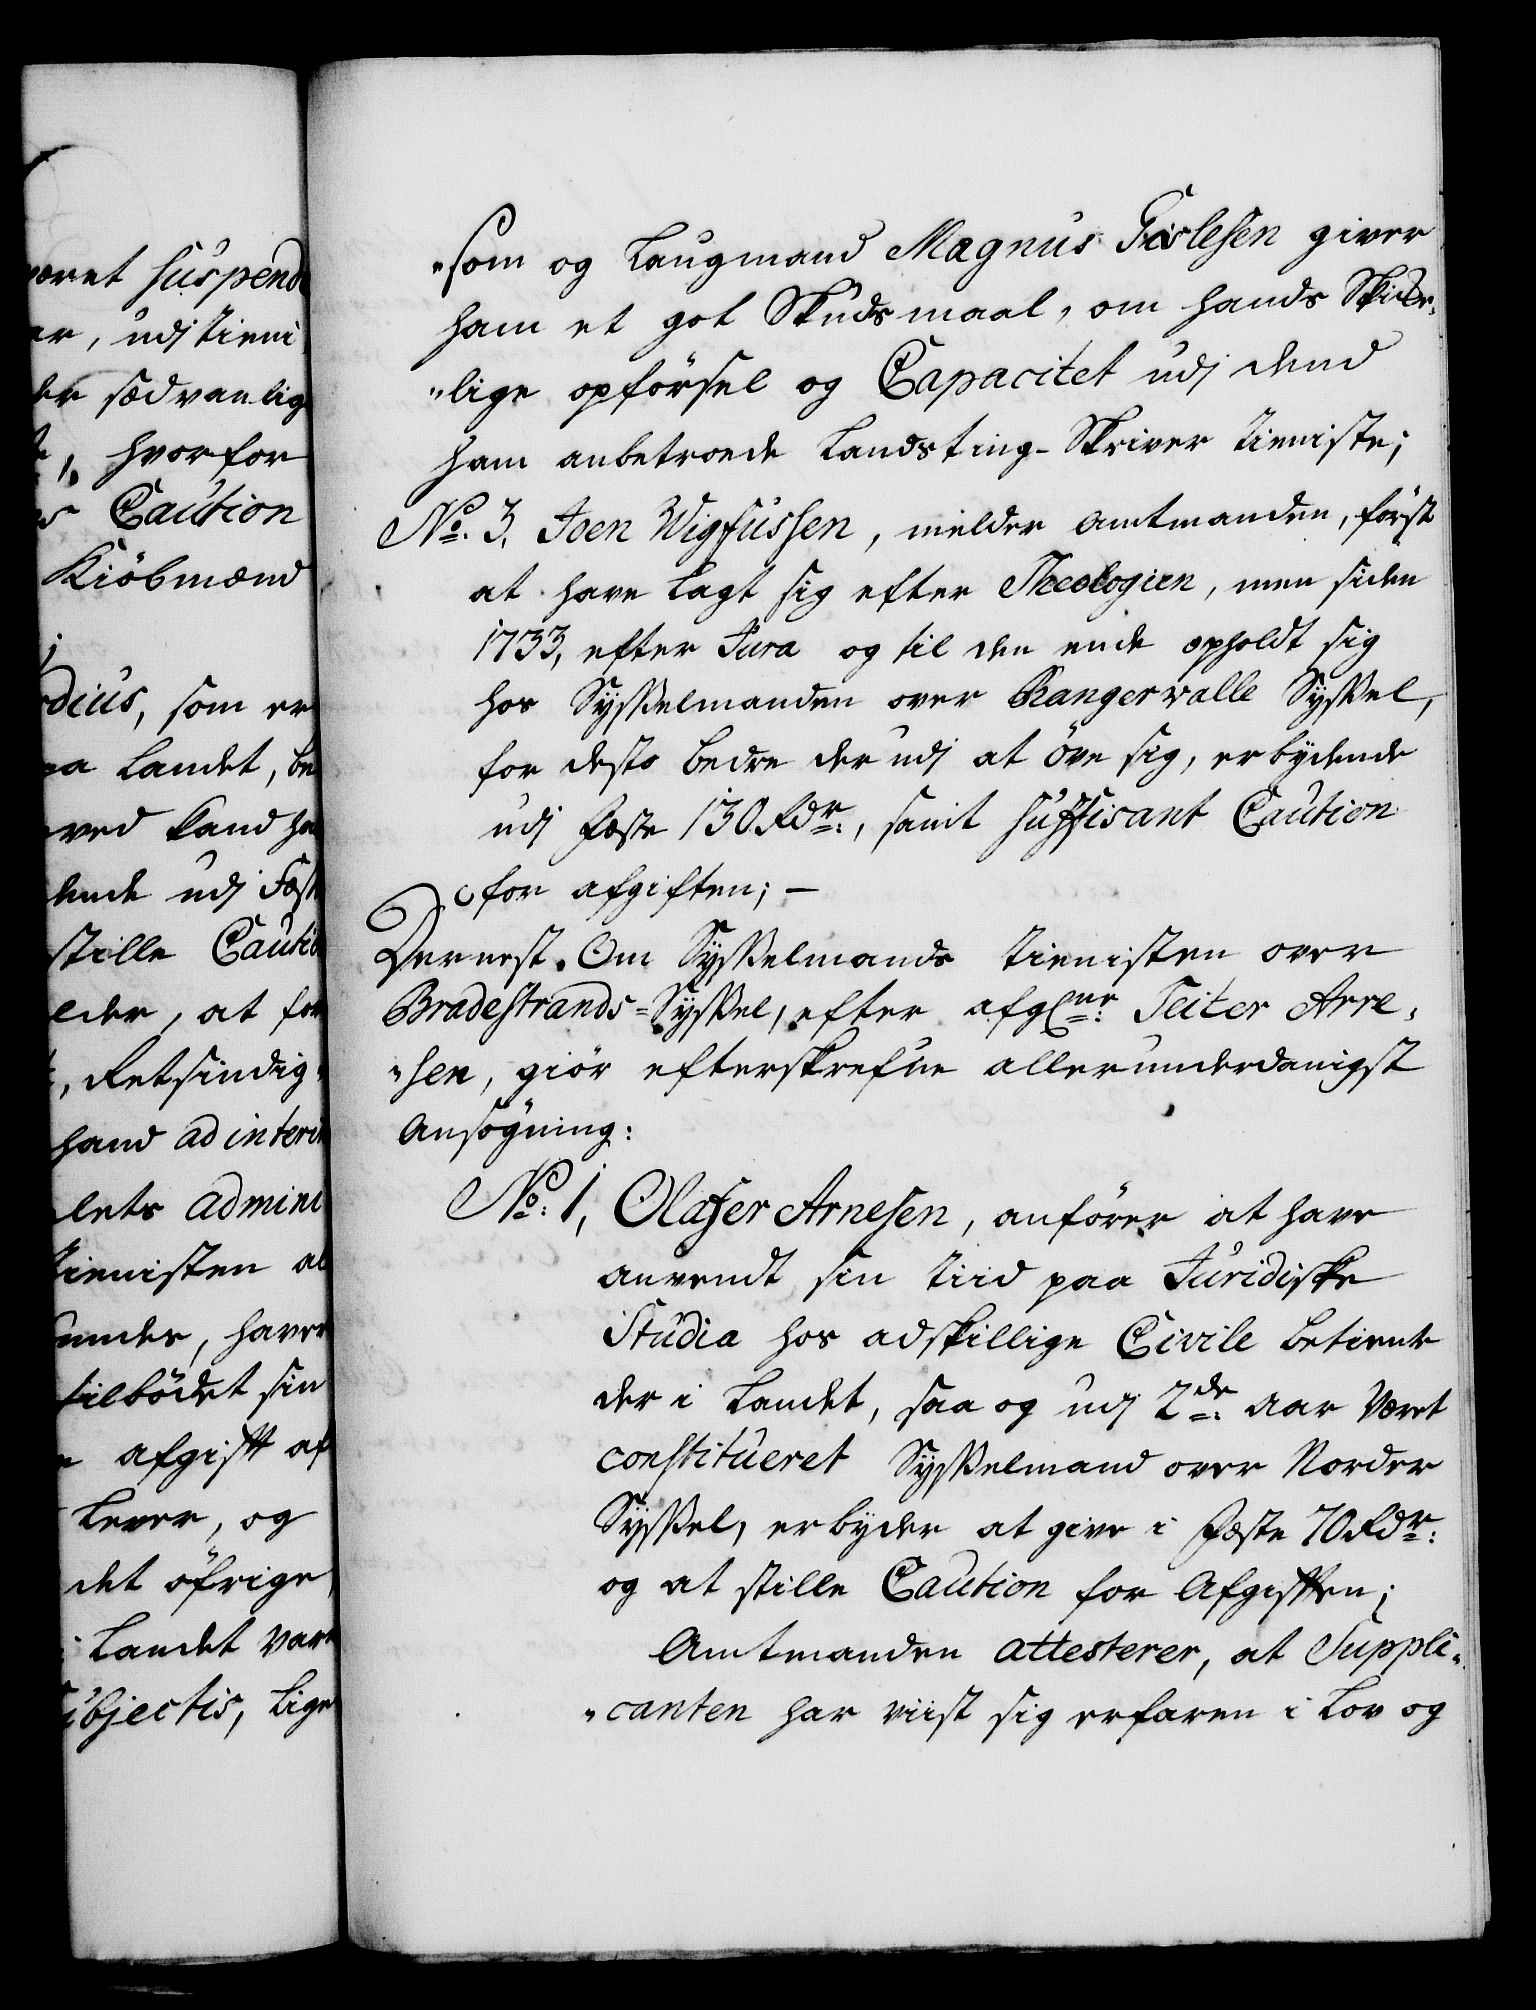 været suspend
er, udj tieni
der sædvanlig
hvorfor
Caution
Kiöbmænd
dius, som er
paa Landet, be
ved kand ha
bende udj Fæst
stille Cautio
elder, at for
, Retsindig-
hand ad interim
lets admini
tienisten al
under, haver
tilbödet sin
afgifft af
Lever, og
det öfrige
Landet var
ubjectis, lige
"som og Laugmand Magnus Gislesen giver
ham et got Skudsmaal, om hands Skicke-
"lige opförsel og Capacitet udj dend
ham anbetroede Landsting-Skriver tieniste;
No. 3, Joen Wigfussen, melder Amtmanden, först
at have lagt sig efter Theologien, men siden
1733, efter Jura og til den ende opholdt sig
hos Sysselmanden over Rangervalle Syssel,
for desto bedre derudj at öve sig, erbydende
udj Fæste 130 Rdr., samt suffisant Caution
for afgiften; —
Dernest. Om Sysselmands tienisten over
Bradestrands-Syssel, efter afgl. Teiter Are-
"sen, giör efterskrefne allerunderdanigst
Ansögning:
No. 1, Olafer Arnesen, anförer at have
anvendt sin tiid paa Juridiske
Studia hos adskillige Civile betiente
der i Landet, saa og udj 2de. Aar Været
constitueret Sysselmand over Norder
Syssel, erbyder at give i Fæste 70 Rdr.
og at stille Caution for Afgifften;
Amtmanden attesterer, at Suppli-
"canten har viist sig erfaren i Lov og